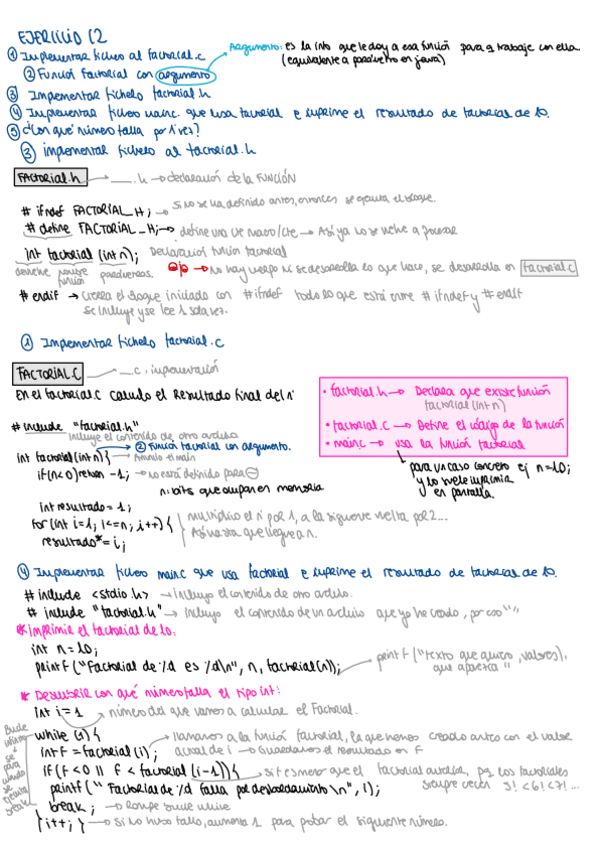 EJERCICIO 12
① Implementar fichero al factorial.c
Argumento: es la info que le doy a esa función para q trabaje con ella
(equivalente a parámetro en java)
② Función Factorial con argumento
③ Implementar fichero factorial.h
④ Implementar fichero main.c que usa factorial e imprime el resultado de factorial de 10.
⑤ ¿Con qué número falla por 1ª vez?
③ implementar fichero al factorial.h
FACTORIAL.h → ___.h → declaración de la FUNCIÓN
# ifndef FACTORIAL_H; → Si no se ha definido antes, entonces se ejecuta el bloque.
# define FACTORIAL_H; → define una macro/cte → Así ya no se vuelve a procesar
int factorial (int n); Declaración función factorial
devuelve nombre función parámetros.
→ No hay cuerpo ni se desarrolla lo que hace, se desarrolla en factorial.c
# endif → Cierra el bloque iniciado con #ifndef todo lo que está entre #ifndef y #endif
se incluye y se lee 1 sola vez.
① Implementar fichero factorial.c
FACTORIAL.C → _.c, implementación
En el factorial.c calculo el resultado final del nº
• factorial.h → Declara que existe función
factorial (int n)
• factorial.c → Define el código de la función
• main.c → usa la función factorial
para un caso concreto ej n=10;
y lo suele imprimir
en pantalla.
# include "factorial.h"
incluye el contenido de otro archivo
② Función factorial con argumento.
int factorial (int n) {
if(n<0) return -1; → no está definido para ⊖
n: bits que ocupan en memoria
int resultado = 1;
for (int i=1; i<=n; i++) {
resultado *= i;
multiplico el nº por 1, a la siguiente vuelta por 2...
Así hasta que llegue a n.
④ Implementar fichero main.c que usa factorial e imprime el resultado de factorial de 10.
# include <stdio.h> → Incluyo el contenido de otro archivo.
# include "factorial.h" → incluyo el contenido de un archivo que yo he creado, por eso " "
* Imprimir el factorial de 10:
int n = 10;
printf ("Factorial de %d es %d\n", n, factorial(n));
printf ("texto que quiero, valores).
que aparezca"
* Descubrir con qué número falla el tipo int:
int i = 1 número del que vamos a calcular el Factorial.
Bucle infinito se para cuando se ejecuta break
while (1) {
llamamos a la función factorial, la que hemos creado antes con el valor
int f = factorial (i); actual de i → Guardamos el resultado en f
if (f < 0 || f < factorial (i-1)) { si f es menor que el factorial anterior, pq los factoriales
siempre crecen 5! < 6! < 7! ...
printf (" Factorial de %d falla por desbordamiento \n", i);
break; → Rompe bucle while
} i++; } → Si no hubo fallo, aumenta 1 para probar el siguiente número.